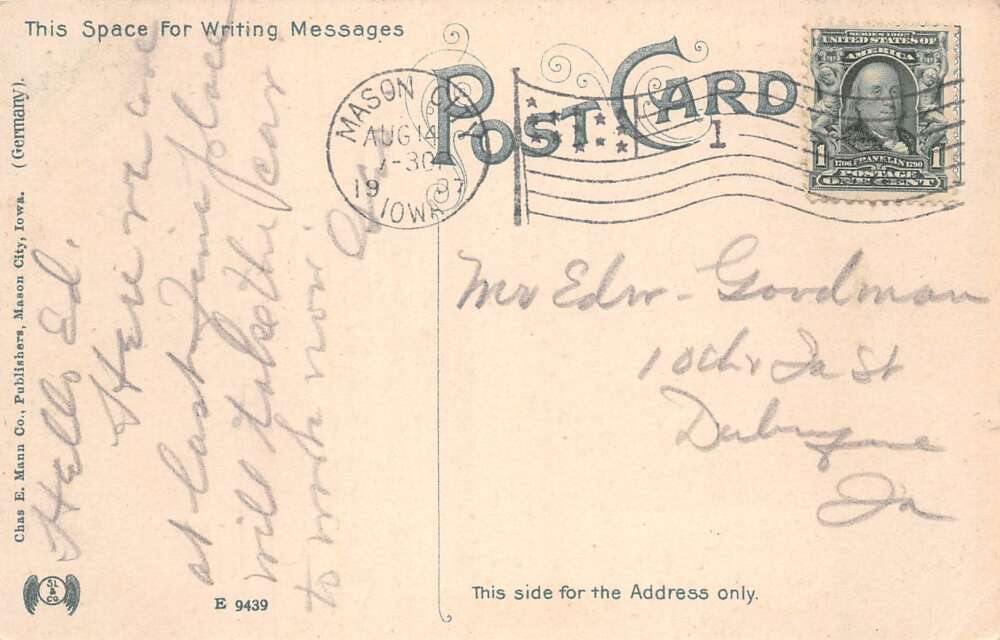 This Space For Writing Messages
POST CARD
MASON CITY
AUG 14
7-30P
1907
IOWA
1
SERIES 1902
UNITED STATES OF
AMERICA
1 1
1706 FRANKLIN 1790
POSTAGE
ONE CENT
Hello Ed.
Here we are
at last fine place
will take the car
to work now
Mr Edw- Goodman
10th & Ia St
Dubuque
Ia
Chas E. Mann Co., Publishers, Mason City, Iowa. (Germany).
SL & Co.
E 9439
This side for the Address only.